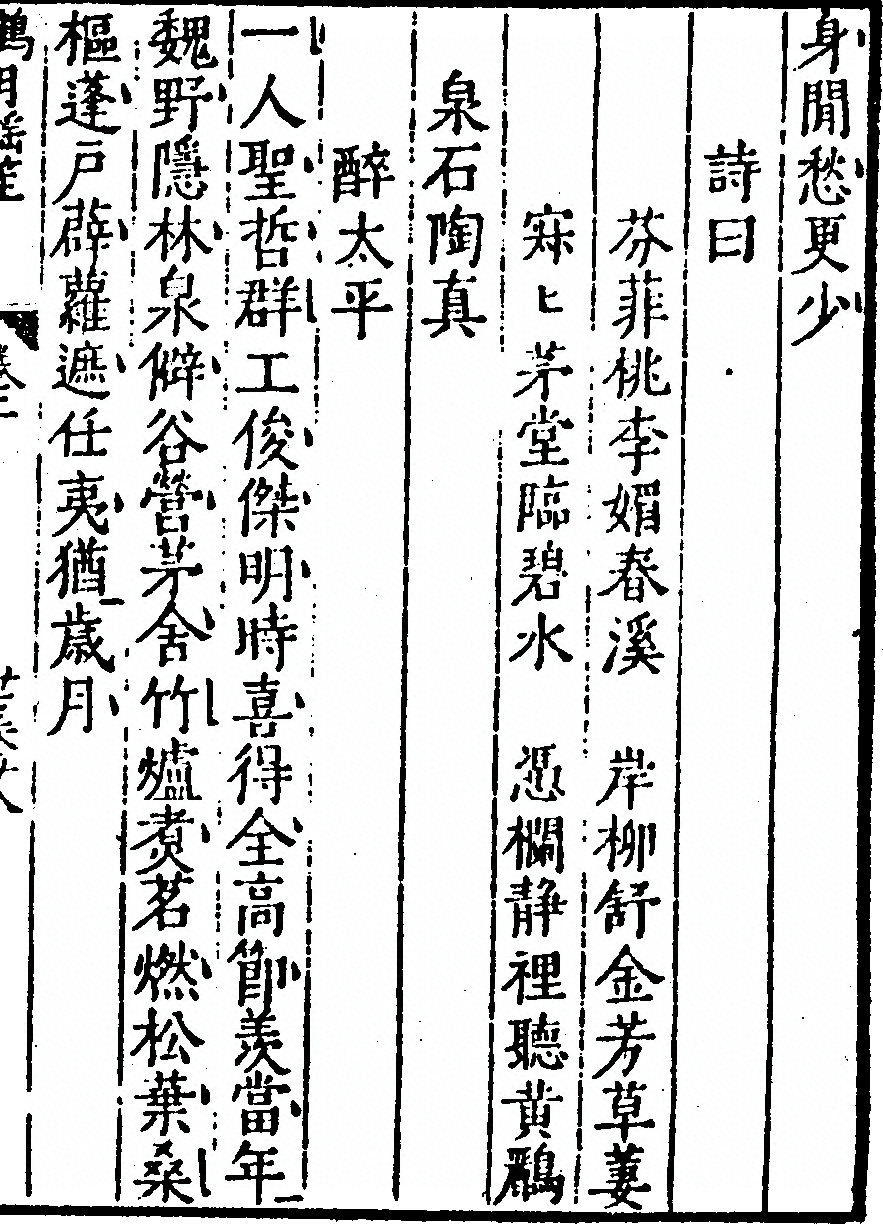 身閒愁更少
詩曰
芬菲桃李媚春溪　岸柳舒金芳草萋
寐匕茅堂臨碧水　憑欄靜裡聽黃鸝
泉石陶真
醉太平
一人聖哲群工俊傑明時喜得全高節羨當年
魏野隱林泉僻谷營茅舍竹爐煑茗燃松葉桑
樞蓬戶薜蘿遮任夷猶歲月